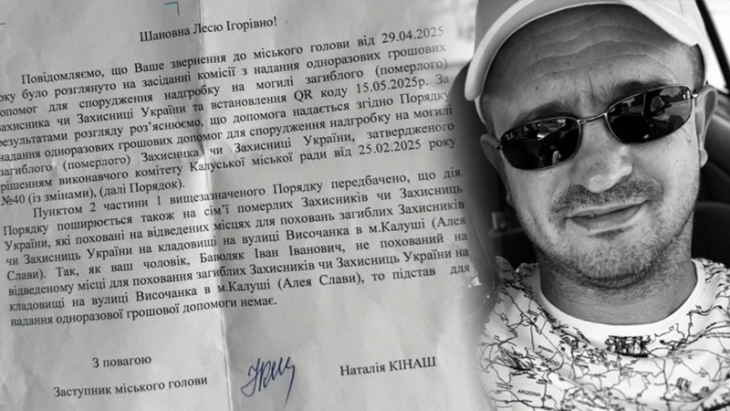 Шановна Лесю Ігорівно!
Повідомляємо, що Ваше звернення до міського голови від 29.04.2025
року було розглянуто на засіданні комісії з надання одноразових грошових
допомог для спорудження надгробку на могилі загиблого (померлого)
Захисника чи Захисниці України та встановлення QR коду 15.05.2025р. За
результатами розгляду роз'яснюємо, що допомога надається згідно Порядку
надання одноразових грошових допомог для спорудження надгробку на могилі
загиблого (померлого) Захисника чи Захисниці України, затвердженого
рішенням виконавчого комітету Калуської міської ради від 25.02.2025 року
№40 (із змінами), (далі Порядок).
Пунктом 2 частини 1 вищезазначеного Порядку передбачено, що дія
Порядку поширюється також на сім'ї померлих Захисників чи Захисниць
України, які поховані на відведених місцях для поховань загиблих Захисників
чи Захисниць України на кладовищі на вулиці Височанка в м.Калуші (Алея
Слави). Так, як ваш чоловік, Баволяк Іван Іванович, не похований на
відведеному місці для поховання загиблих Захисників чи Захисниць України на
кладовищі на вулиці Височанка в м.Калуші (Алея Слави), то підстав для
надання одноразової грошової допомоги немає.
З повагою
Заступник міського голови Наталія КІНАШ
ARIZONA